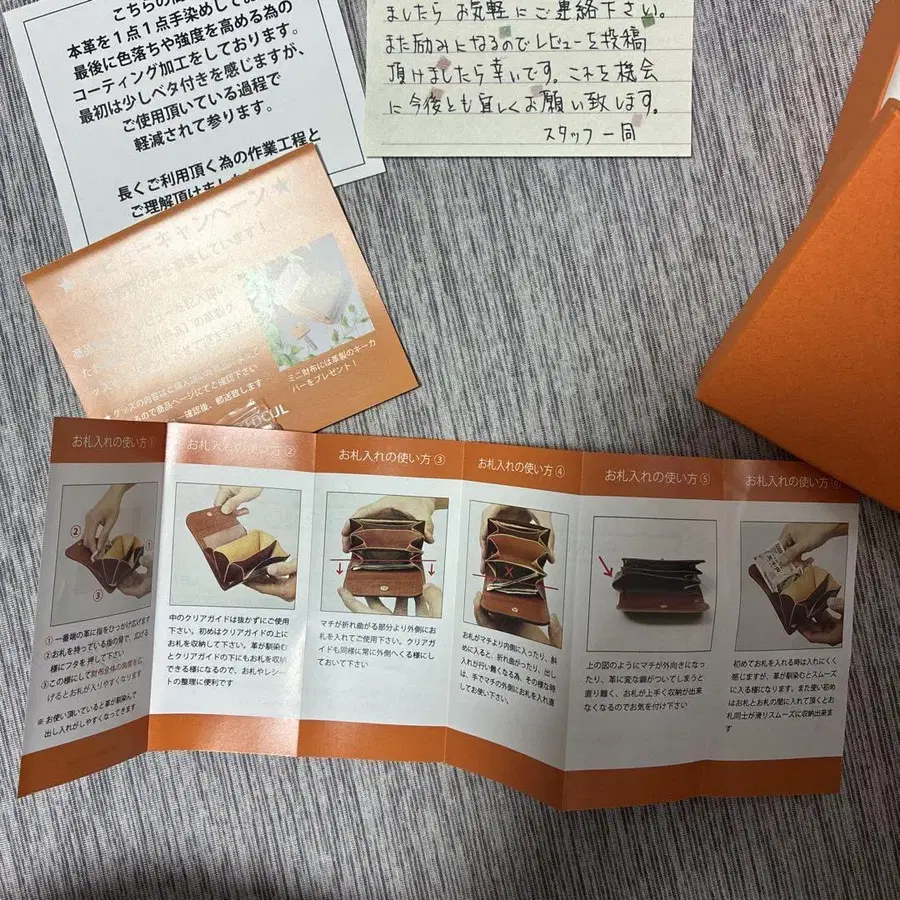 本革を1点1点手染めしてお
最後に色落ちや強度を高める為の
コーティング加工をしております。
最初は少しベタ付きを感じますが、
ご使用頂いている過程で
軽減されて参ります。
長くご利用頂く為の作業工程と
ご理解頂けま
ましたら お気軽にご連絡下さい。
また励みになるのでレビューを投稿
頂けましたら幸いです。これを機会
に今後とも宜しくお願い致します。
スタッフ一同
ビューキャンペーン★
ミニ財布には革製のキーカ
バーをプレゼント！
お札入れの使い方①
②
①
③
①一番端の革に指をひっかけ広げます
②お札を持っている指の肩で、広げる
様にフタを押して下さい
③この様にして財布全体の角度を広
げるとお札が入りやくなります
※お使い頂いていると革が馴染んで
出し入れがしやすくなってきます
お札入れの使い方②
中のクリアガイドは抜かずにご使用
下さい。初めはクリアガイドの上に
お札を収納して下さい。革が馴染む
とクリアガイドの下にもお札を収納
できる様になるので、お札やレシー
トの整理に便利です
お札入れの使い方③
マチが折れ曲がる部分より外側にお
札を入れてご使用下さい。クリアガ
イドも同様に常に外側へくる様にし
ておいて下さい
お札入れの使い方④
お札がマチより内側に入ったり、斜
めに入ると、折れ曲がったり、出し
入れが行い難くなる為、その様な時
は、手でマチの外側にお札を入れ直
してお使い下さい。
お札入れの使い方⑤
上の図のようにマチが外向きになっ
たり、革に変な癖がついてしまうと
直り難く、お札が上手く収納が出来
なくなるのでお気を付け下さい
お札入れの使い方⑥
初めてお札を入れる時は入れにくく
感じますが、革が馴染むとスムーズ
に入る様になります。また使い初め
はお札とお札の間に入れて頂くとお
札同士が滑りスムーズに収納出来ま
す